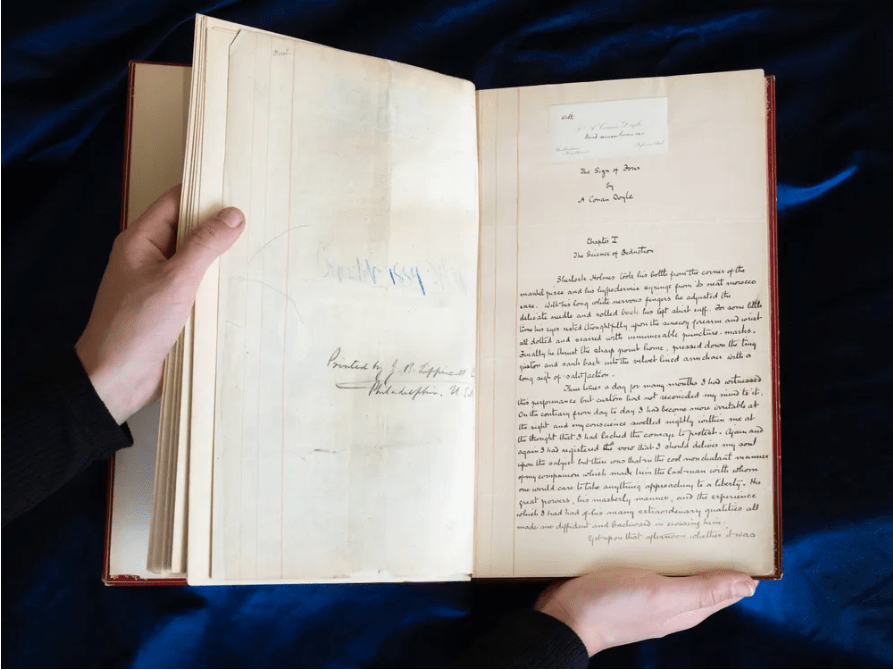 Printed by J. B. Lippincott
Philadelphia, U.S.A
A Conan Doyle
The Sign of Four
by
A Conan Doyle
Chapter I
The Science of Deduction
Sherlock Holmes took his bottle from the corner of the
mantelpiece and his hypodermic syringe from its neat morocco
case. With his long white nervous fingers he adjusted the
delicate needle and rolled back his left shirt cuff. For some little
time his eyes rested thoughtfully upon the sinewy forearm and wrist
all dotted and scarred with innumerable puncture-marks.
Finally he thrust the sharp point home, pressed down the tiny
piston and sank back into the velvet lined arm chair with a
long sigh of satisfaction.
Three times a day for many months I had witnessed
this performance but custom had not reconciled my mind to it.
On the contrary from day to day I had become more irritable at
the sight and my conscience swelled nightly within me at
the thought that I had lacked the courage to protest. Again and
again I had registered the vow that I should deliver my soul
upon the subject but there was that in the cool nonchalant manner
of my companion which made him the last man with whom
one would care to take anything approaching to a liberty. His
great powers, his masterly manner, and the experience
which I had had of his many extraordinary qualities all
made me diffident and backward in crossing him.
Yet upon that afternoon whether it was